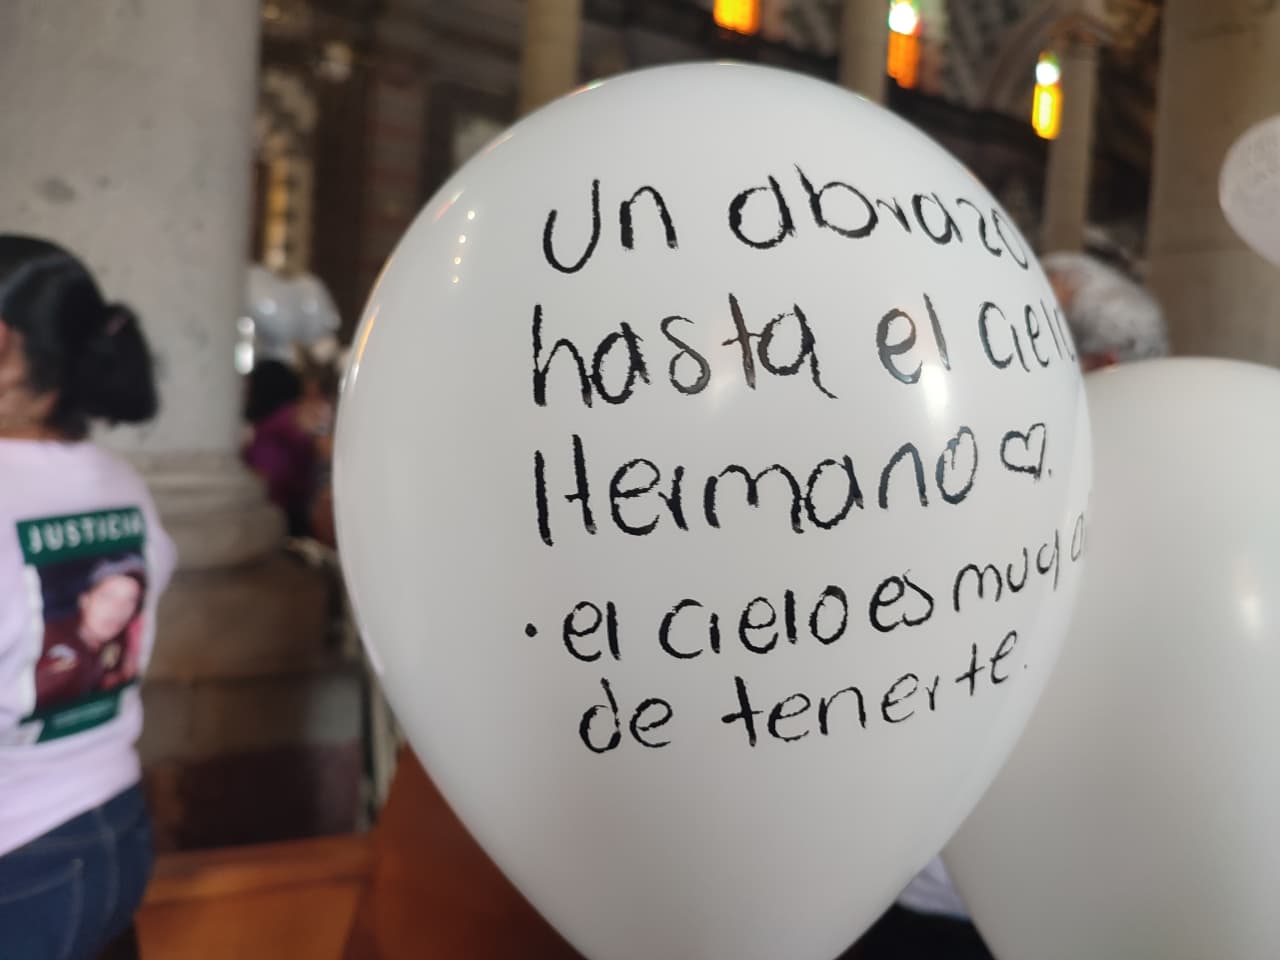 JUSTICIA
Un abrazo
hasta el cielo
Hermano ♡.
• el cielo es muy
de tenerte.